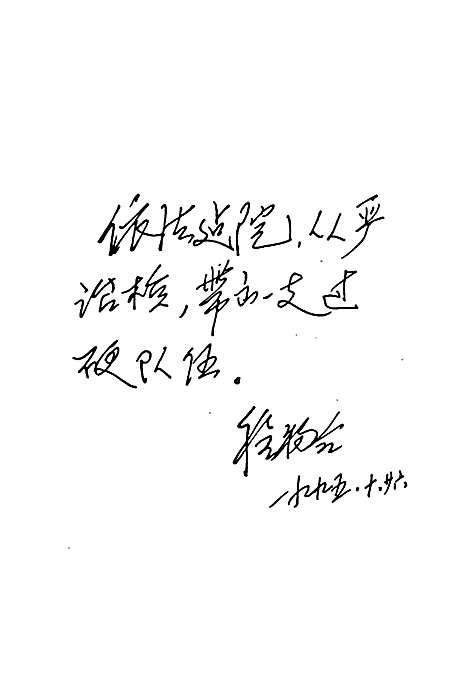 依法建院，从严
治检，带出一支过
硬队伍。
一九九五.十.廿六